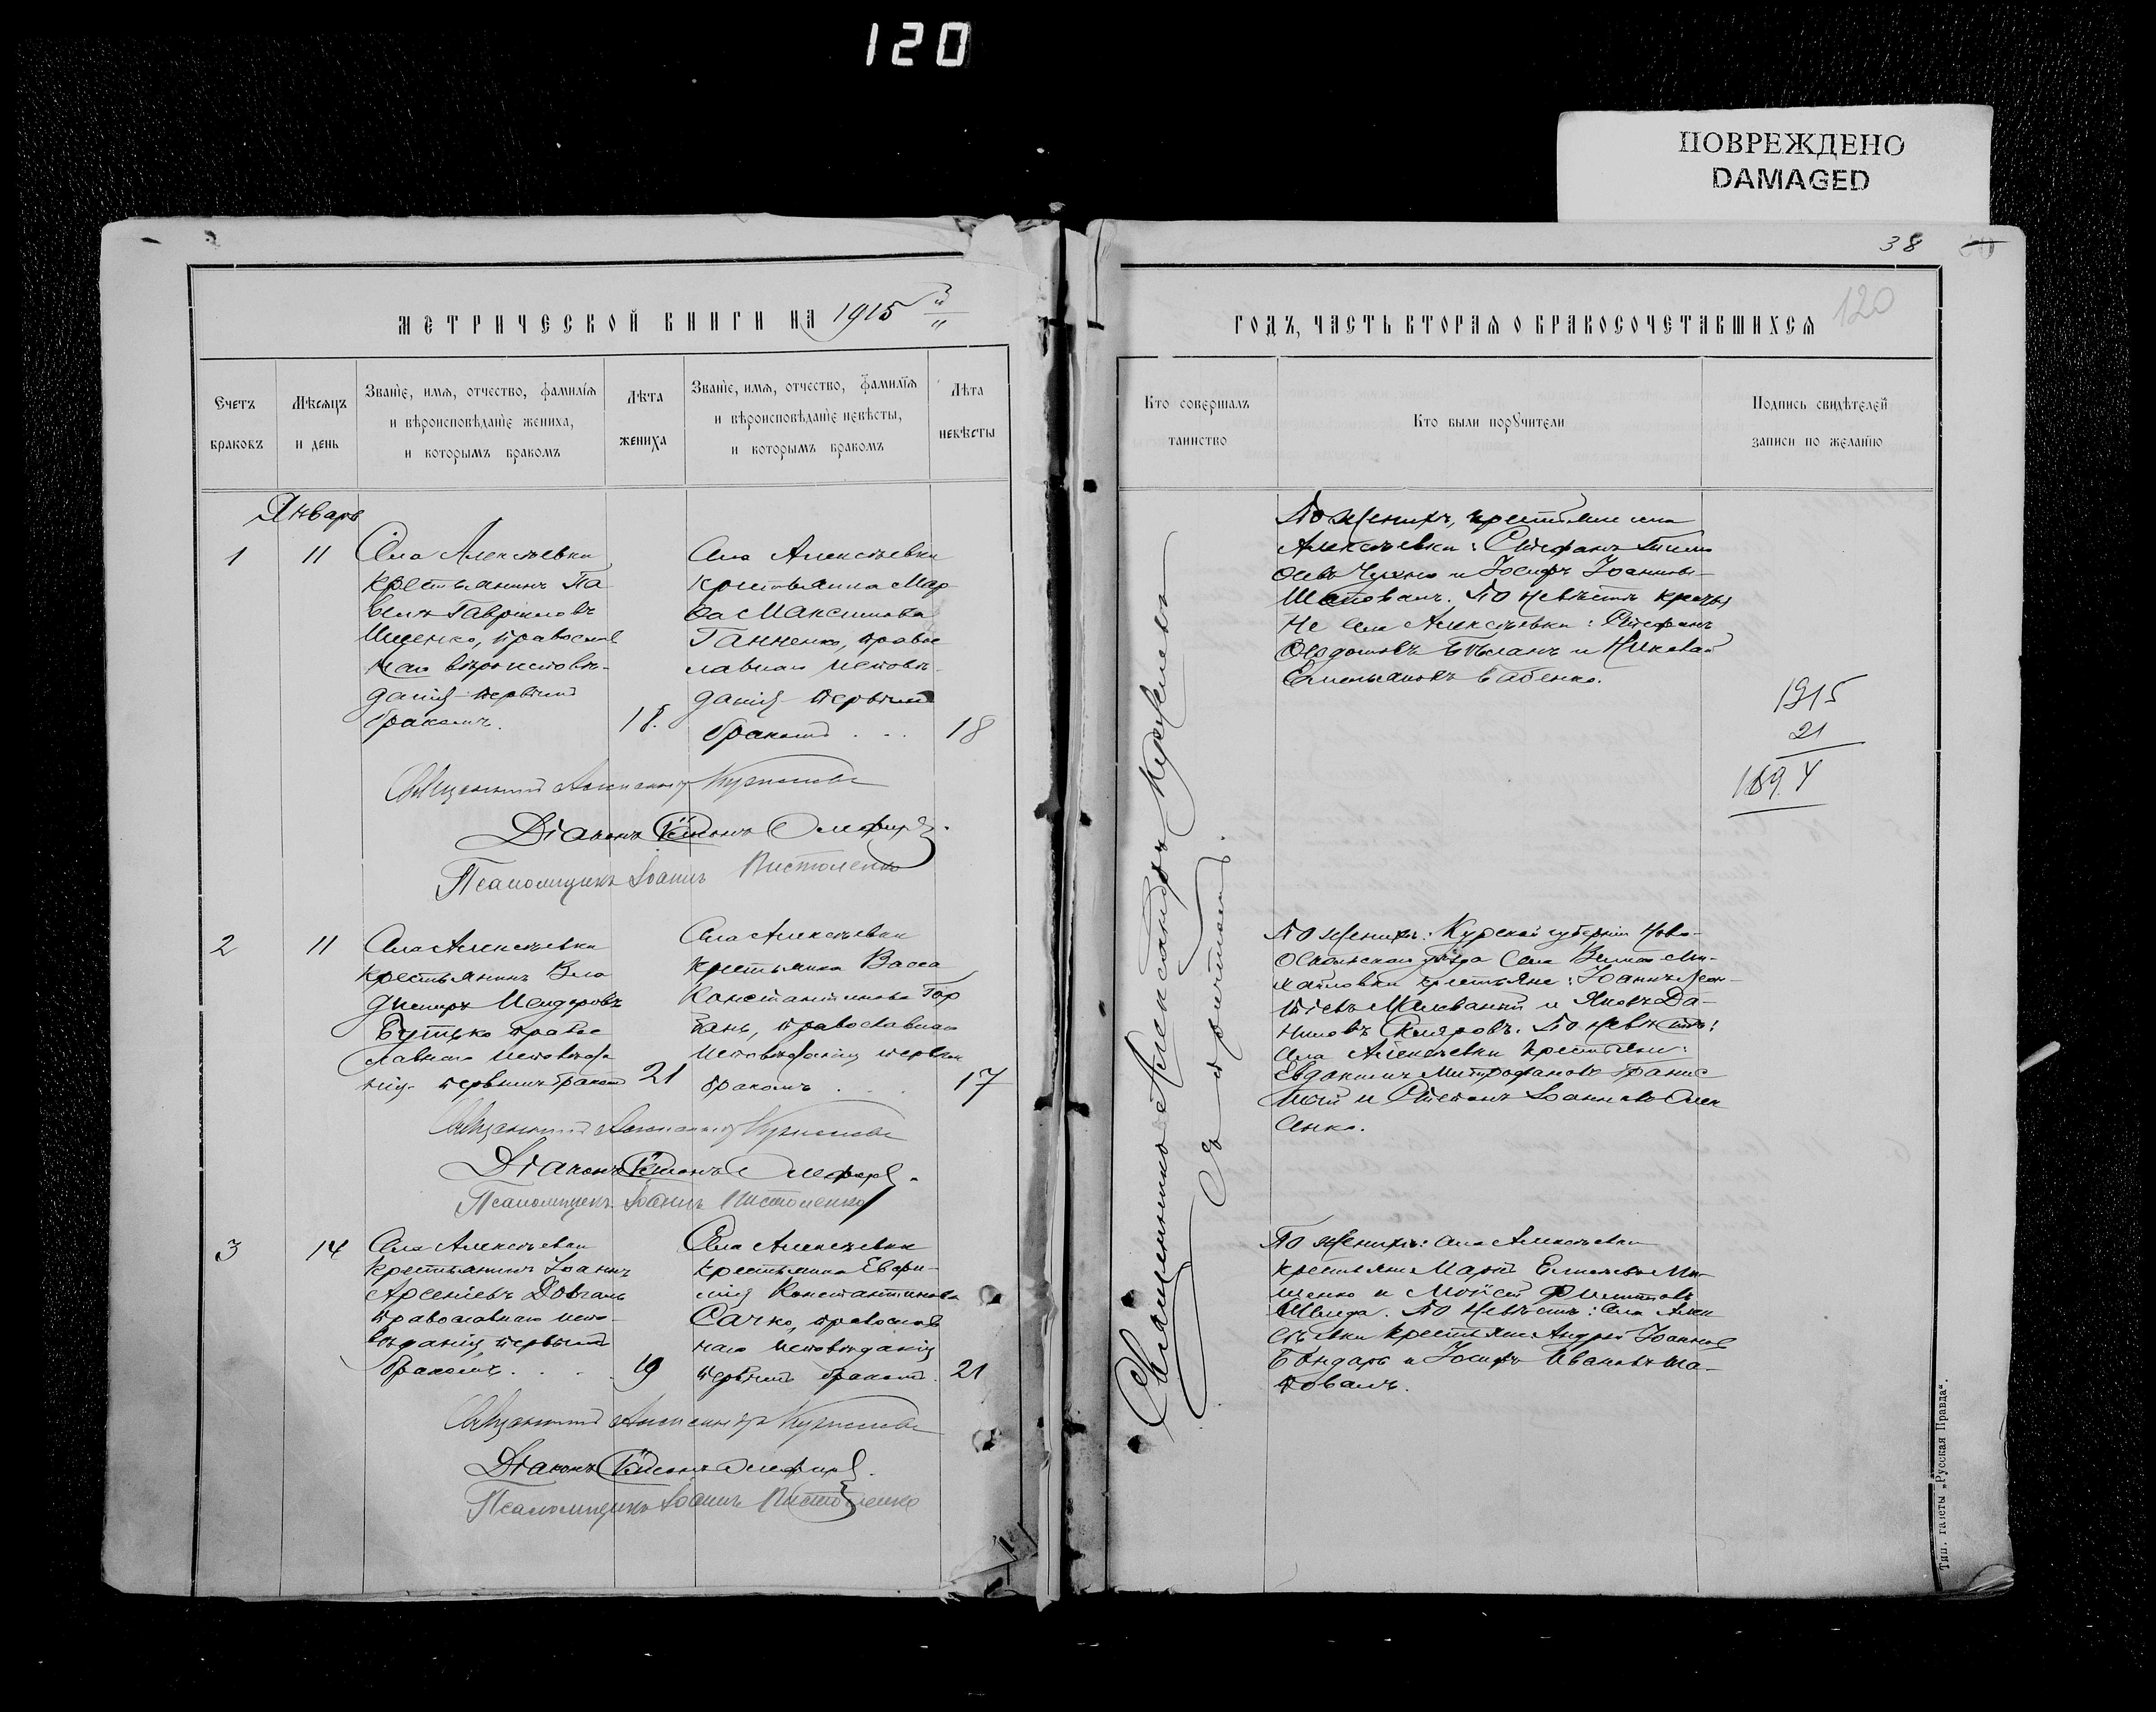 120
ПОВРЕЖДЕНО
DAMAGED
38
120
МЕТРИЧЕСКОЙ КНИГИ НА 1915
ГОДЪ, ЧАСТЬ ВТОРАЯ О БРАКОСОЧЕТАВШИХСЯ
Счетъ браковъ
Мѣсяцъ и день
Званіе, имя, отчество, фамилія
и вѣроисповѣданіе жениха,
и которымъ бракомъ
Лѣта жениха
Званіе, имя, отчество, фамилія
и вѣроисповѣданіе невѣсты,
и которымъ бракомъ
Лѣта невѣсты
Кто совершалъ
таинство
Кто были поручители
Подпись свидѣтелей
записи по желанію
Январь
1
11
Села Алексѣевки
крестьянинъ Па
велъ Гавриловъ
Ищенко, православ
наго вѣроисповѣ-
данія первымъ
бракомъ.
18.
Села Алексѣевки
крестьянка Мар
ѳа Максимова
Ганненко, правос
лавнаго исповѣ-
данія первымъ
бракомъ
18
По женихѣ, крестьяне села
Алексѣевки: Стефанъ
и Іосифъ Іоанновъ
Шаповалъ. По невѣстѣ крестья
не села Алексѣевки: Стефанъ
Ѳедотовъ и Николай
Емельяновъ Бабенко.
1915
21
1894
Священникъ Александръ
Діаконъ
Псаломщикъ Іоаннъ Пистоленко
2
11
Села Алексѣевки
крестьянинъ Вла
диміръ
Бутько правос
лавнаго исповѣда
нія первымъ бракомъ
21
Села Алексѣевки
крестьянка Васса
Константинова Гор
бань, православнаго
исповѣданія первым
бракомъ
17
По женихѣ: Курской губерніи Ново-
оскольскаго уѣзда села Ми-
хайловки крестьяне: Іоаннъ
и Яковъ Да-
ниловъ По невѣстѣ:
села Алексѣевки крестьяне:
Евдокимъ Митрофановъ
и Стефанъ Іоанновъ Алек
сенко.
Священникъ Александръ
Діаконъ
Псаломщикъ Іоаннъ Пистоленко
3
14
Села Алексѣевки
крестьянинъ Іоаннъ
Арсеніевъ Довгаль
православнаго испо-
вѣданія, первымъ
бракомъ
19
Села Алексѣевки
крестьянка Евфи-
мія Константинова
Сачко, православ
наго исповѣданія
первымъ бракомъ.
21
По женихѣ: села Алексѣевки
крестьяне Маркъ
и Моисей Филипповъ
По невѣстѣ: села Алек
сѣевки крестьяне Андрей Іоанновъ
Бондарь и Іосифъ Ивановъ Ша-
повалъ.
Священникъ Александръ
Діаконъ
Псаломщикъ Іоаннъ Пистоленко
Священникъ Александръ
Съ причтомъ.
Тип. газеты „Русская Правда“.